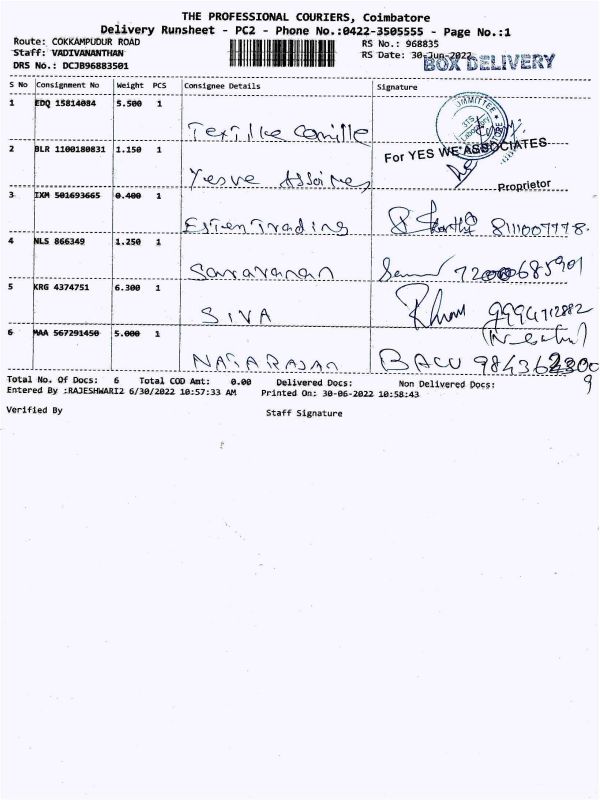 THE PROFESSIONAL COURIERS, Coimbatore
Delivery Runsheet - PC2 - Phone No.:0422-3505555 - Page No.:1
Route: COKKAMPUDUR ROAD RS No.: 968835
Staff: VADIVANANTHAN RS Date: 30-Jun-2022
BOX DELIVERY
DRS No.: DCJB96883501
S No Consignment No Weight PCS Consignee Details Signature
1 EDQ 15814084 5.500 1
2 BLR 1100180831 1.150 1
For YES WE ASSOCIATES
Proprietor
3 IXM 501693665 0.400 1
EsTen Trading 8111007778
4 NLS 866349 1.250 1
Saravanan
5 KRG 4374751 6.300 1
SIVA 9994712882
6 MAA 567291450 5.000 1
NATARAJAN
Total No. Of Docs: 6 Total COD Amt: 0.00 Delivered Docs: Non Delivered Docs:
Entered By :RAJESHWARI2 6/30/2022 10:57:33 AM Printed On: 30-06-2022 10:58:43
Verified By Staff Signature